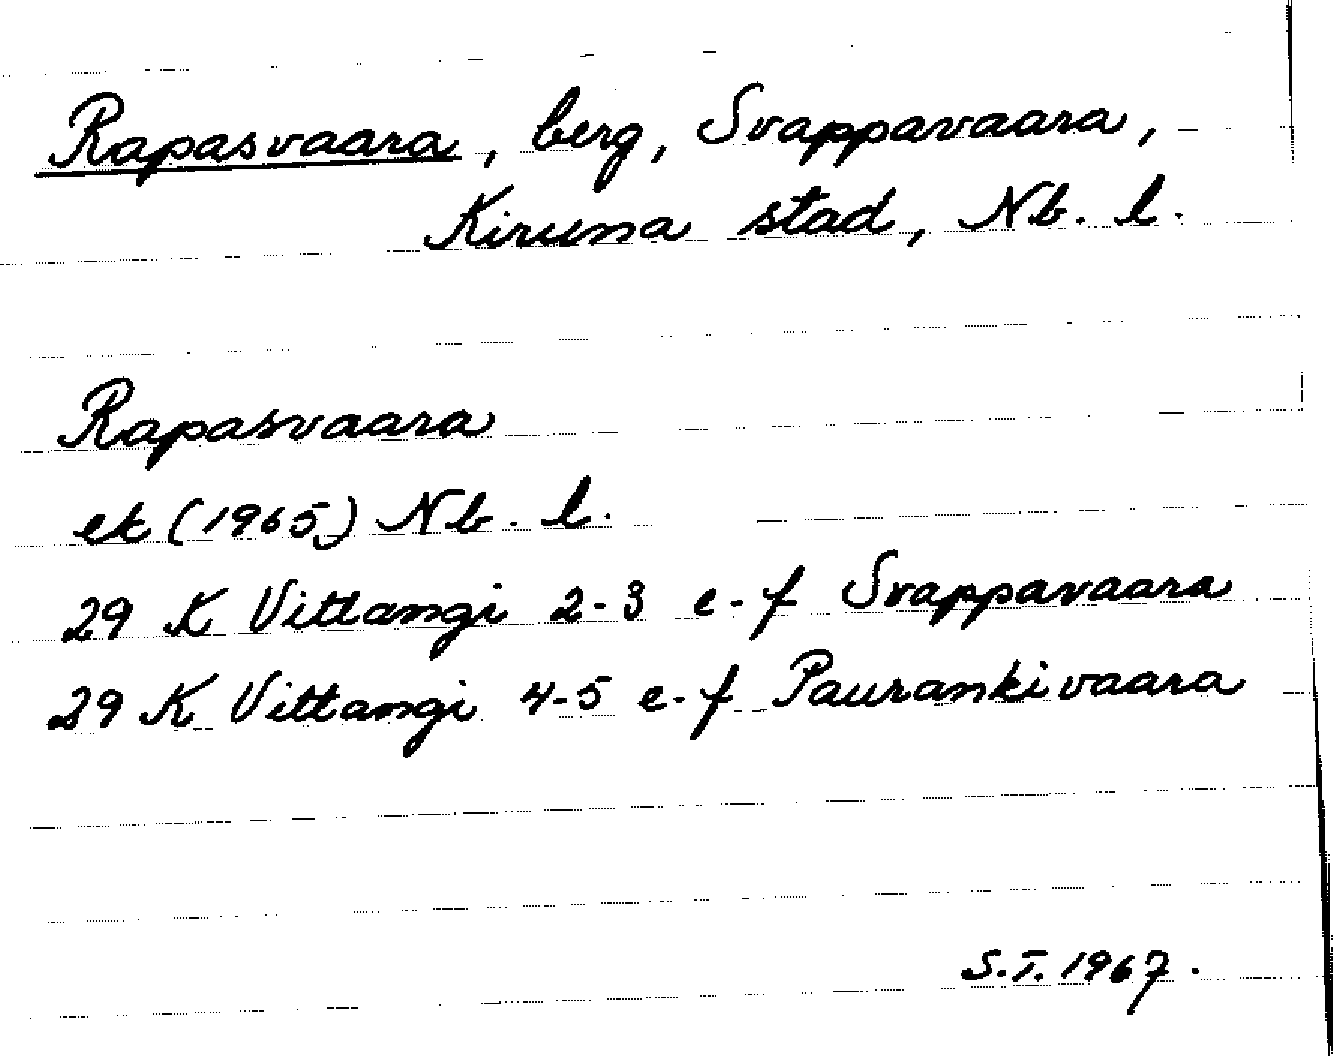 Rapasvaara, berg, Svappavaara,
Kiruna stad, Nb. l.
Rapasvaara
ek (1965) Nb. l.
29 K Vittangi 2-3 e-f Svappavaara
29 K Vittangi 4-5 e-f Paurankivaara
S.T. 1967.